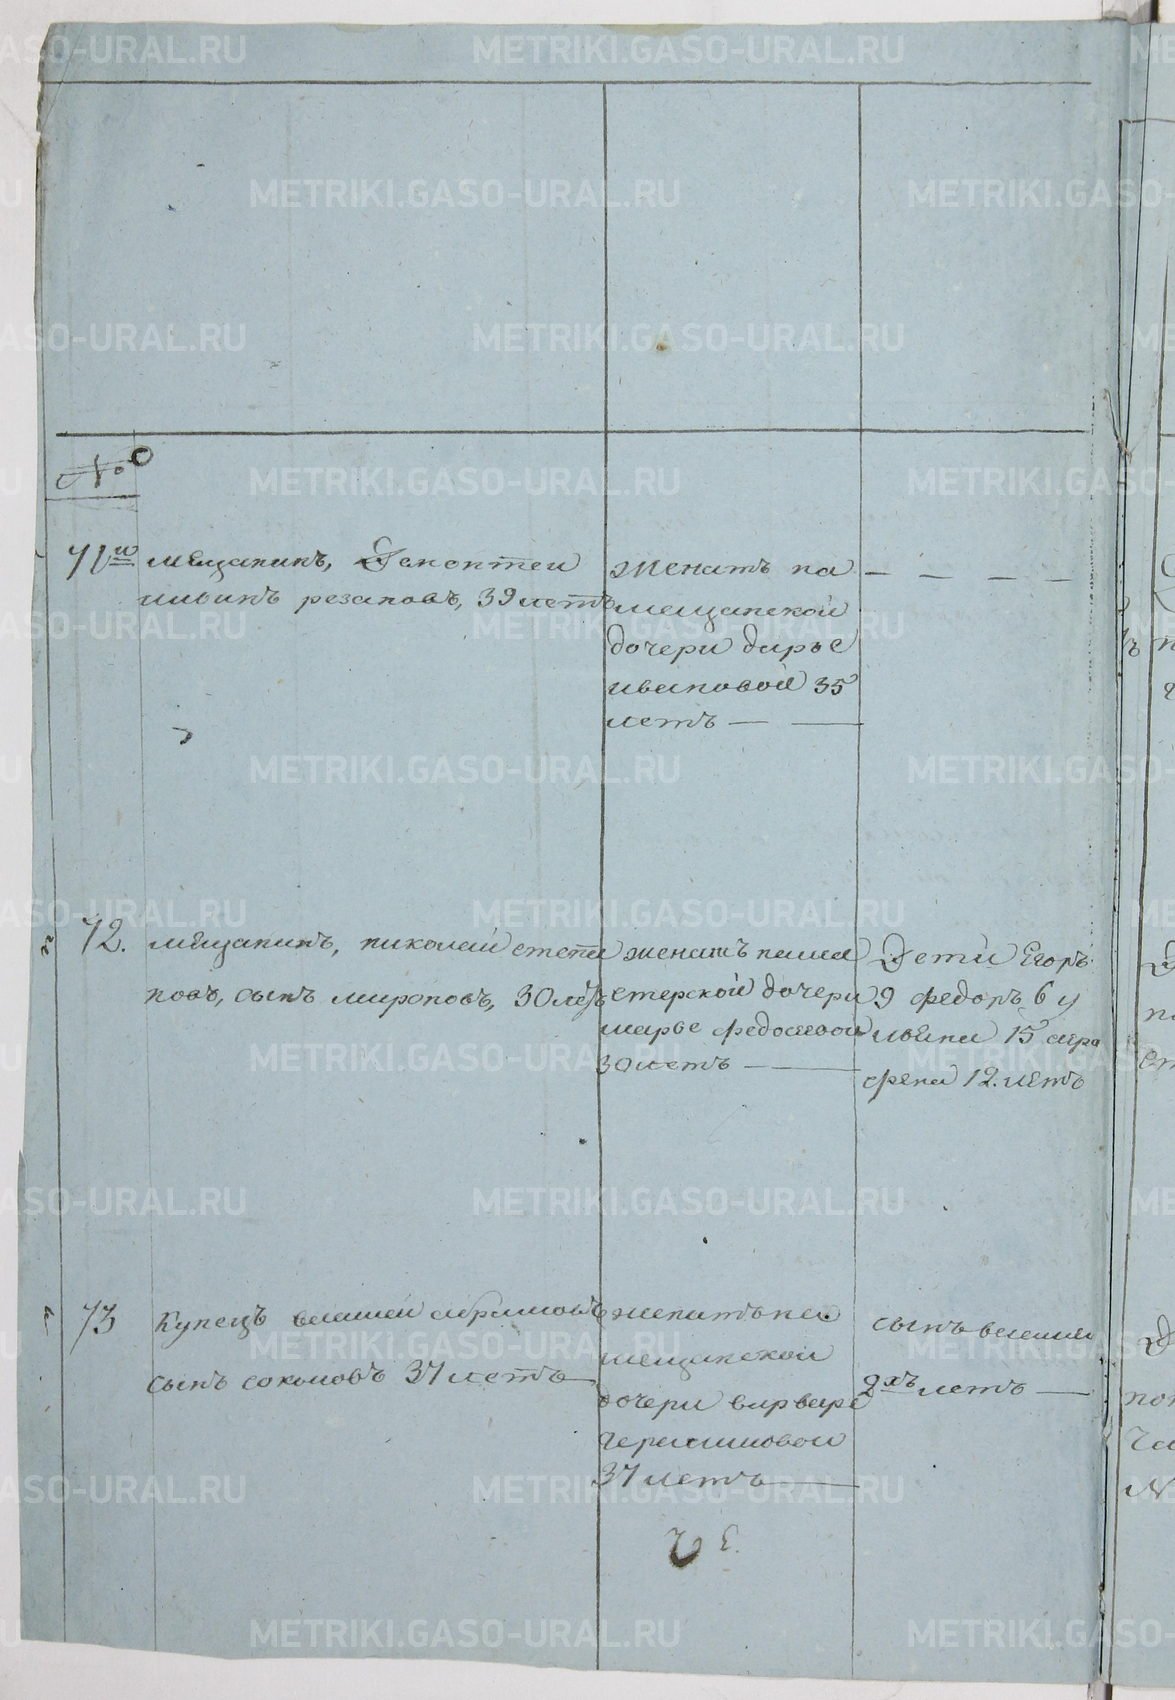 №
71й мещанинъ, Леконтеи
ильинъ резановъ, 39 летъ
женатъ на
мещанской
дочери дарье
ивановой 35
летъ
72. мещанинъ, николаи степа
новъ, сынъ мироновъ, 30 летъ
женатъ нама
стерской дочери
марье федосеевой
30 летъ
Дети Егоръ
9 федоръ 6 и
ивана 15 агра
фена 12. летъ
73 Купецъ василеи абрамовъ
сынъ соколовъ 37 летъ
женатъ на
мещанскои
дочери варваре
герасимовои
37 летъ
сынъ василеи
2хъ летъ
METRIKI.GASO-URAL.RU